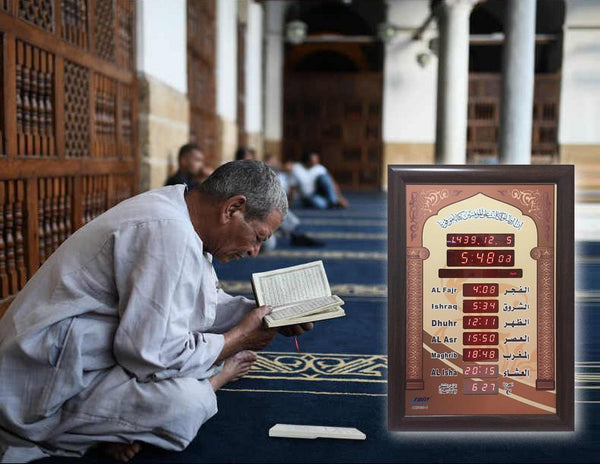 إن الصلاة كانت على المؤمنين كتابا موقوتا
1439.12. 5
5:48 03
AL Fajr 4:08 الفجر
Ishraq 5:34 الشروق
Dhuhr 12:11 الظهر
AL Asr 15:50 العصر
Maghrib 18:48 المغرب
AL Isha 20:15 العشاء
6:27